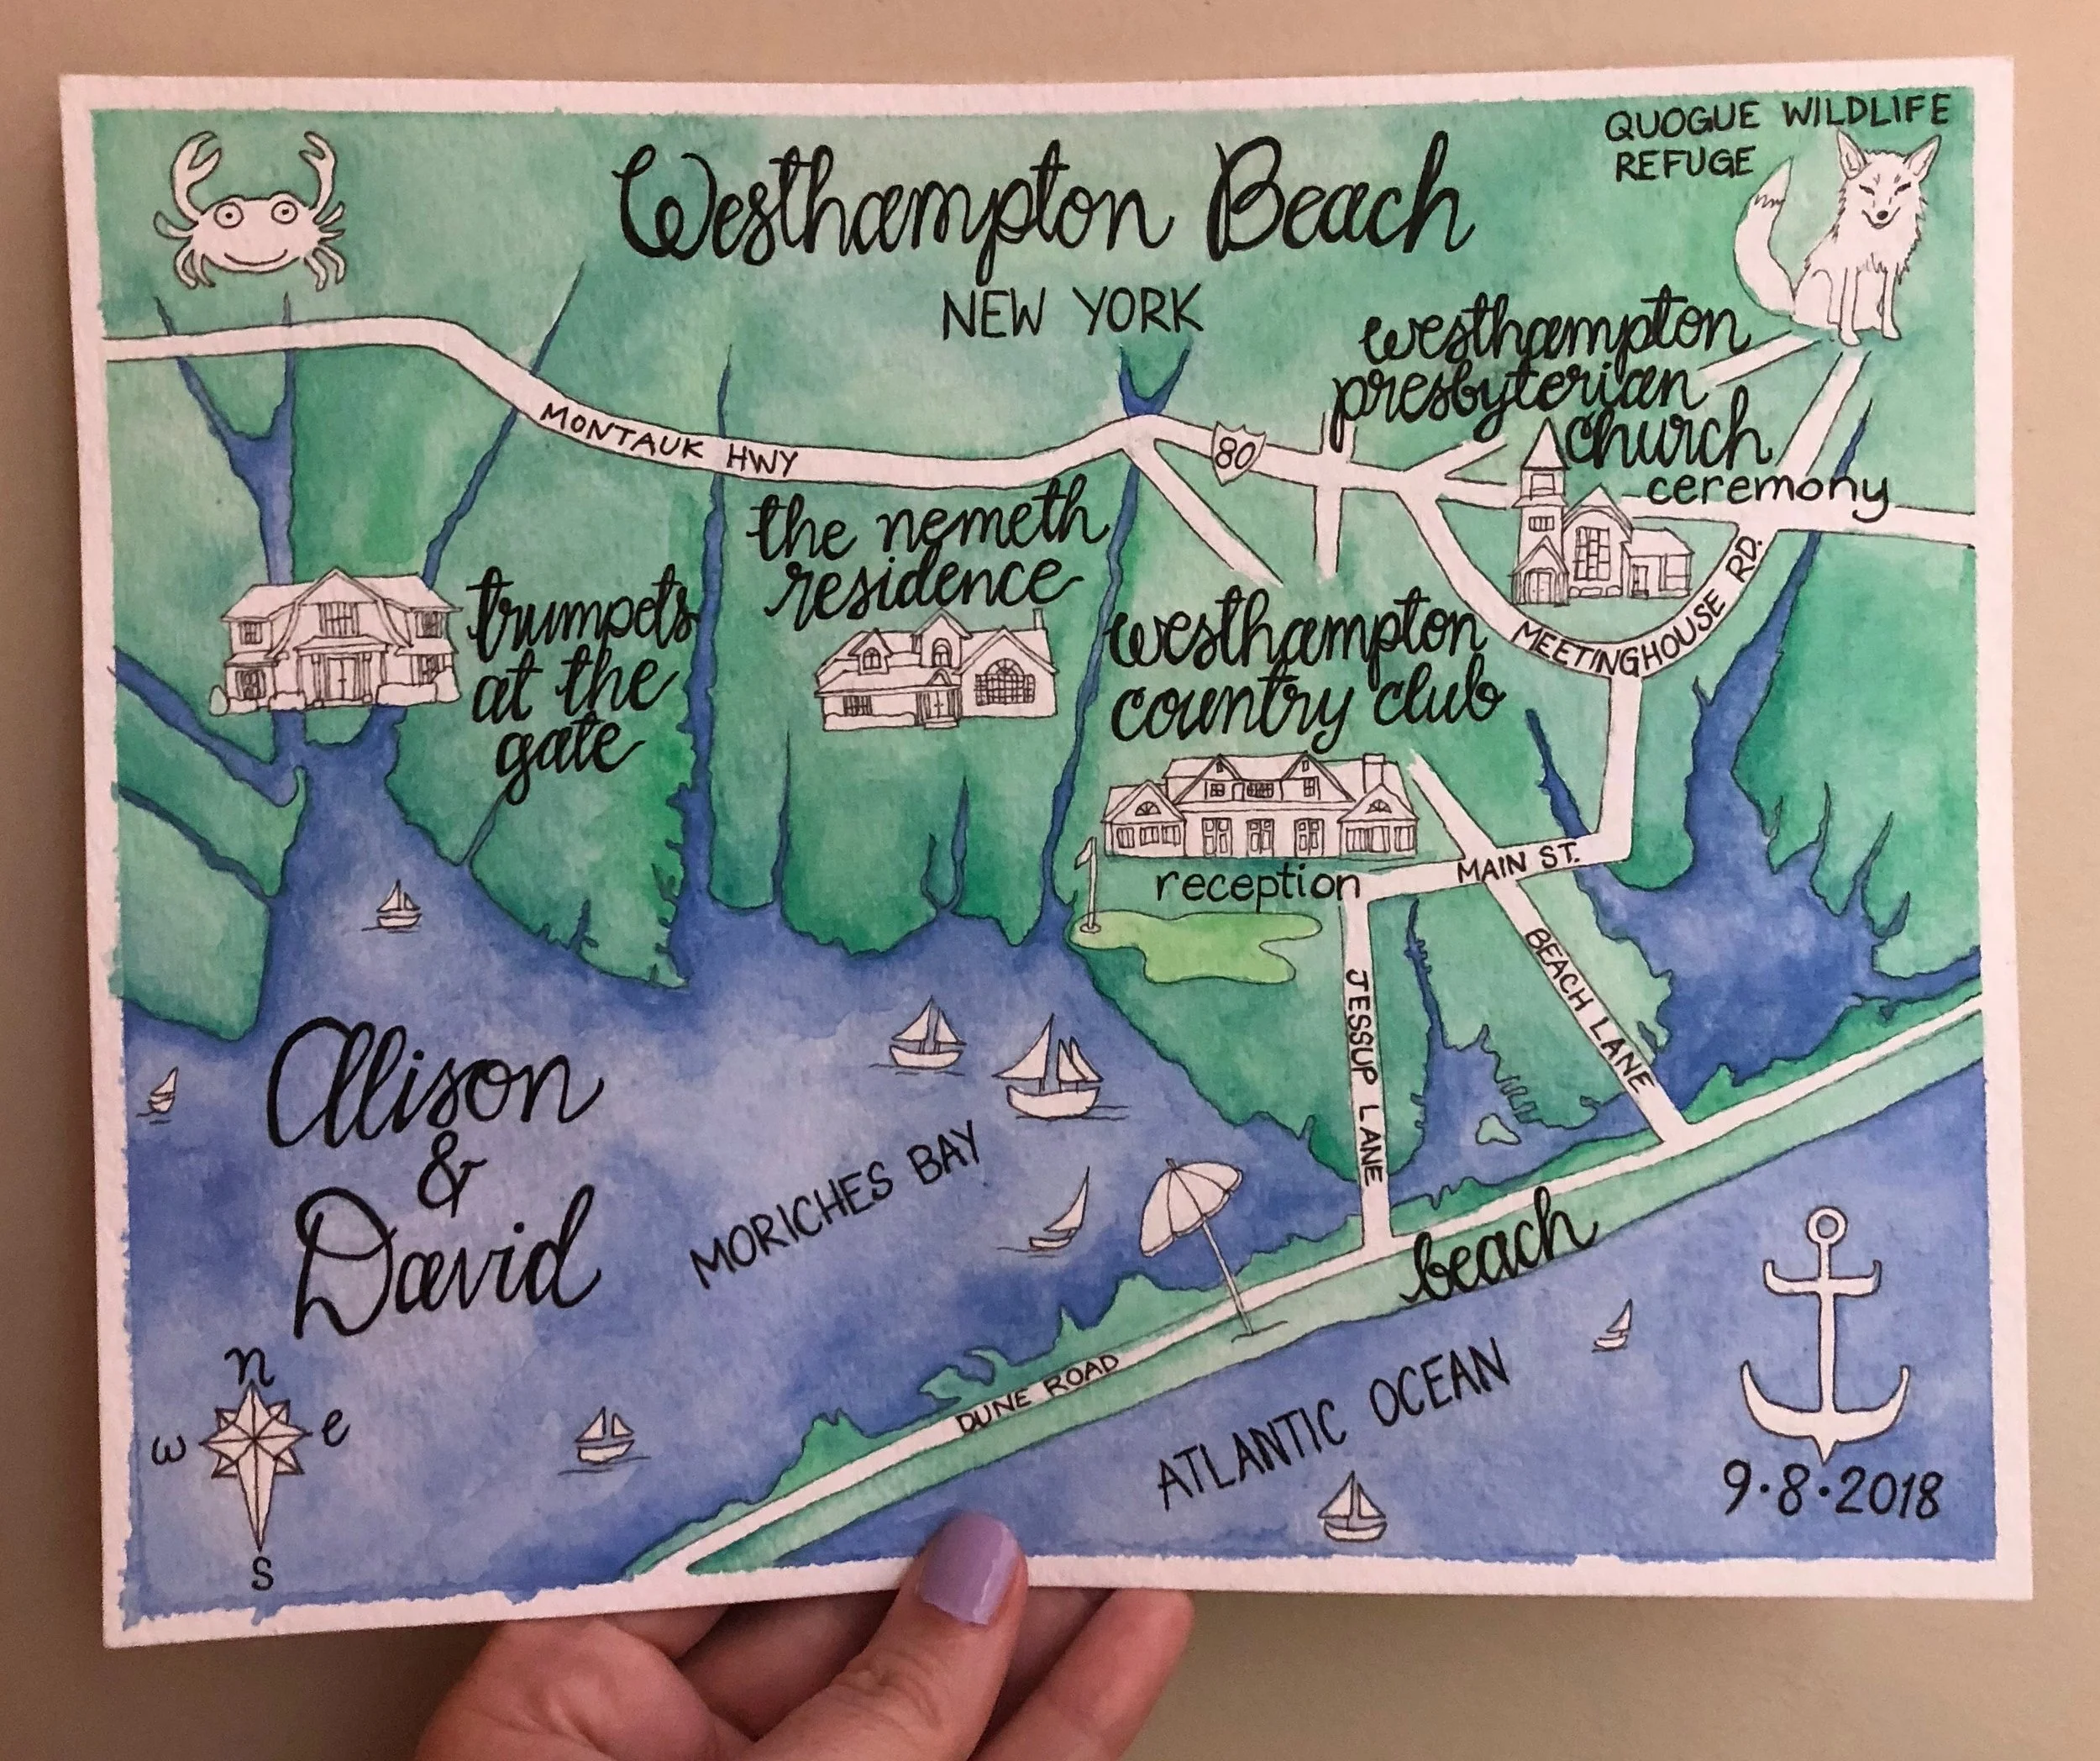 QUOGUE WILDLIFE
REFUGE
Westhampton Beach
NEW YORK
westhampton
presbyterian
church
ceremony
MONTAUK HWY
80
the nemeth
residence
trumpets
at the
gate
westhampton
country club
reception
MEETINGHOUSE RD.
MAIN ST.
BEACH LANE
JESSUP LANE
Allison
&
David
MORICHES BAY
beach
DUNE ROAD
ATLANTIC OCEAN
n
w
e
s
9·8·2018